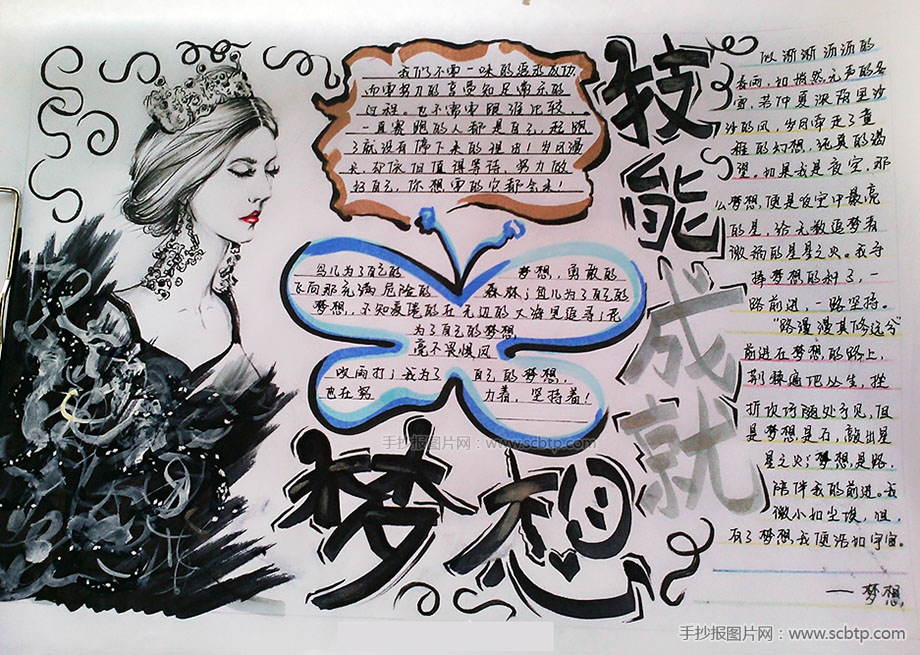 我们不需一味的追求成功
而需努力的享受知足常乐的
过程。也不需需跟谁比较,
一直赛跑的人都是自己,起跑
了就没有停下来的理由!岁月漫
长,却依旧值得等待,努力做
好自己,你想要的它都会来!
鸟儿为了自己的梦想,勇敢的
飞向那充满危险的森林;鱼儿为了自己的
梦想,不知疲倦的在无边的大海里追寻;花
为了自己的梦想
毫不畏惧风
吹雨打;我为了自己的梦想,
也在努力着,坚持着!
技能
成就
梦想
似淅淅沥沥的
春雨,如悄然无声的冬
雪,若仲夏深夜里沙
沙的风,岁月带走了童
稚的幻想,纯真的渴
望。如果我是夜空,那
么梦想,便是夜空中最亮
的星,给无数追梦者
微弱的星星之火。我手
捧梦想的种子,一
路前进,一路坚持。
“路漫漫其修远兮”
前进在梦想的路上,
荆棘痛肥丛生,挫
折坎坷随处可见,但
是梦想是石,敲出星
星之火;梦想,是路,
陪伴我的前进。我
微小如尘埃,但,
有了梦想,我便浩如宇宙。
—— 梦想
手抄报图片网:www.scbtp.com
手抄报图片网:www.scbtp.com